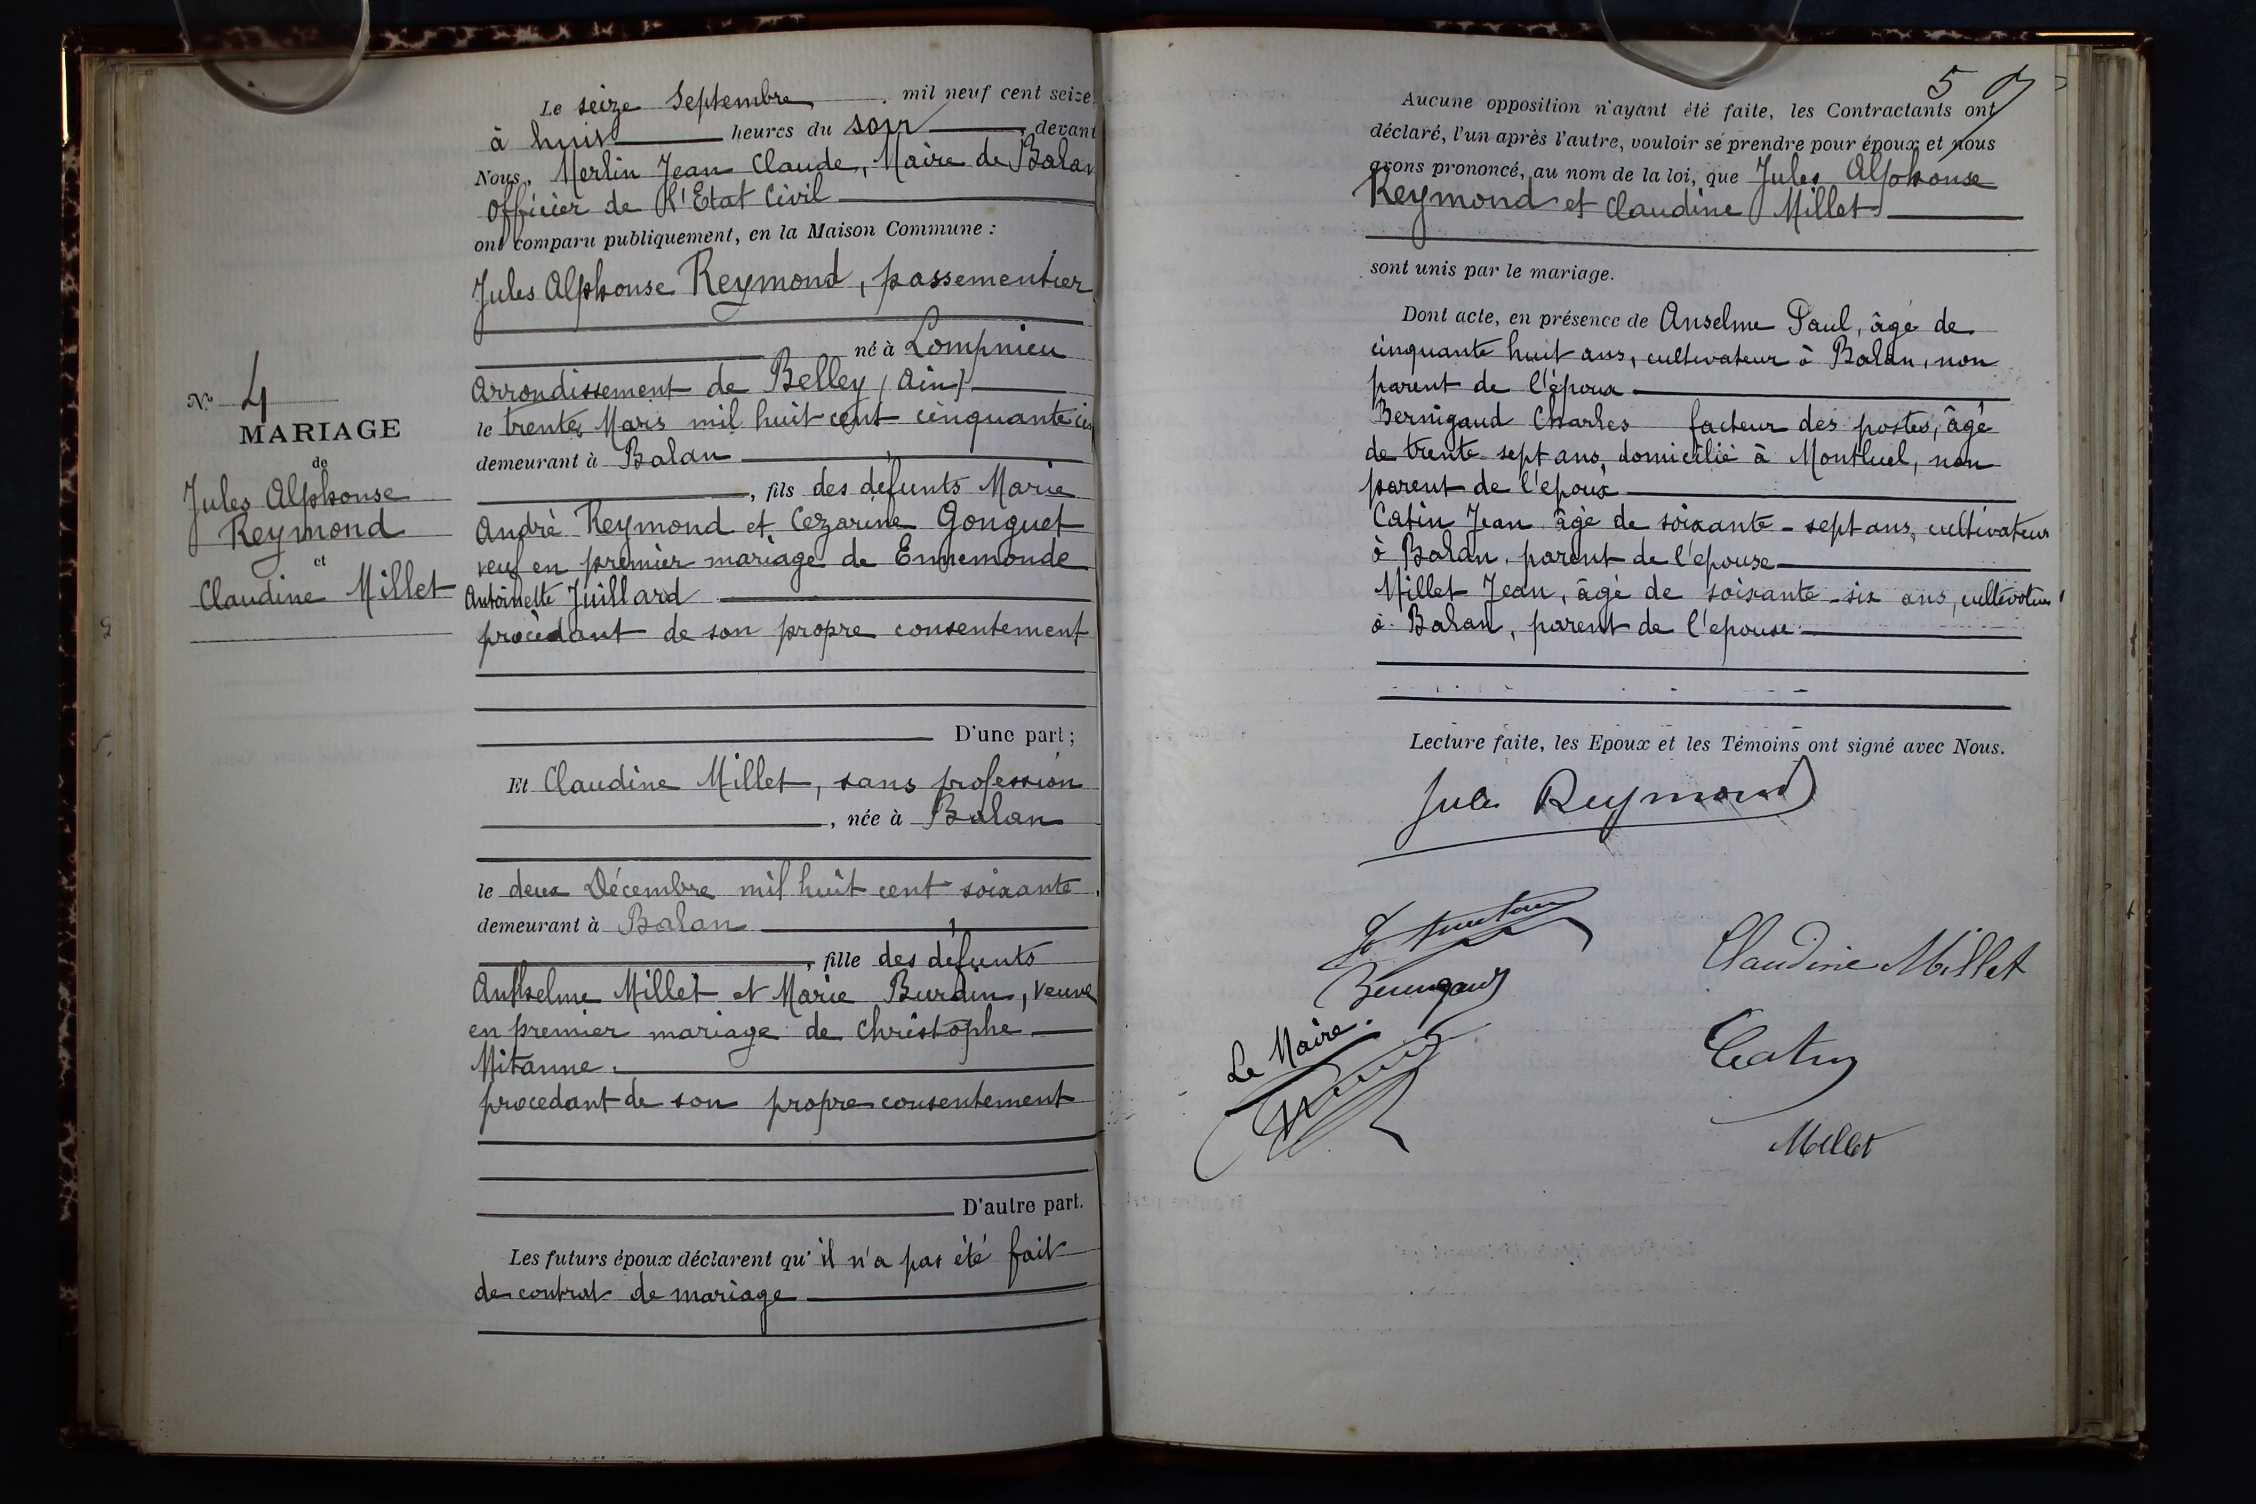 Le seize Septembre mil neuf cent seize
à huit heures du soir, devant
Nous, Merlin Jean Claude, Maire de Balan
Officier de l'Etat Civil
ont comparu publiquement, en la Maison Commune :
Jules Alphonse Reymond, passementier
né à Lompnieu
Arrondissement de Belley (Ain)
le trente Mars mil huit cent cinquante cin
demeurant à Balan
, fils des défunts Marie
André Reymond et Cezarine Gonguet
veuf en premier mariage de Ennemonde
Antoinette Juillard
procèdant de son propre consentement
D'une part ;
Et Claudine Millet, sans profession
, née à Balan
le deux Décembre mil huit cent soixante
demeurant à Balan
, fille des défunts
Anthselme Millet et Marie Burdin, veuve
en premier mariage de Christophe
Mitanne.
procedant de son propre consentement
D'autre part.
Les futurs époux déclarent qu'il n'a pas été fait
de contrat de mariage
N° 4
MARIAGE
de
Jules Alphonse
Reymond
et
Claudine Millet
5
Aucune opposition n'ayant été faite, les Contractants ont
déclaré, l'un après l'autre, vouloir se prendre pour époux et nous
avons prononcé, au nom de la loi, que Jules Alphonse
Reymond et Claudine Millet
sont unis par le mariage.
Dont acte, en présence de Anselme Paul, âgé de
cinquante huit ans, cultivateur à Balan, non
parent de l'époux
Bernigaud Charles facteur des postes, âgé
de trente-sept ans, domicilié à Montluel, non
parent de l'epoux
Catin Jean âgé de soixante-sept ans, cultivateur
à Balan, parent de l'epouse
Millet Jean, âgé de soixante-six ans, cultivateur
à Balan, parent de l'epouse
Lecture faite, les Epoux et les Témoins ont signé avec Nous.
Jules Reymond
Claudine Millet
Bernigaud
Le Maire.
Catin
Millet